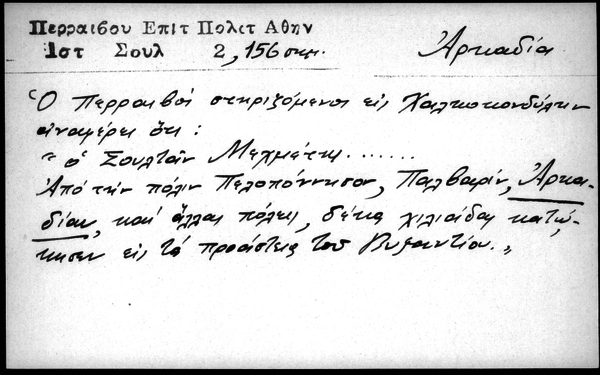 Περραιβου Επιτ Πολετ Αθην
Ιστ Σουλ 2, 156 σημ. Ἀρκαδία
Ὁ Περραιβός στηριζόμενος εἰς Χαλκοκονδύλην
ἀναφέρει ὅτι :
" ὁ Σουλτάν Μεχμέτης.......
Ἀπό τήν πόλιν Πελοπόννησον, Παλβαρίν, Ἀρκα-
δίαν, καί ἄλλας πόλεις, δέκα χιλιάδας κατώ-
κησεν εἰς τά προάστεια τοῦ Βυζαντίου. „